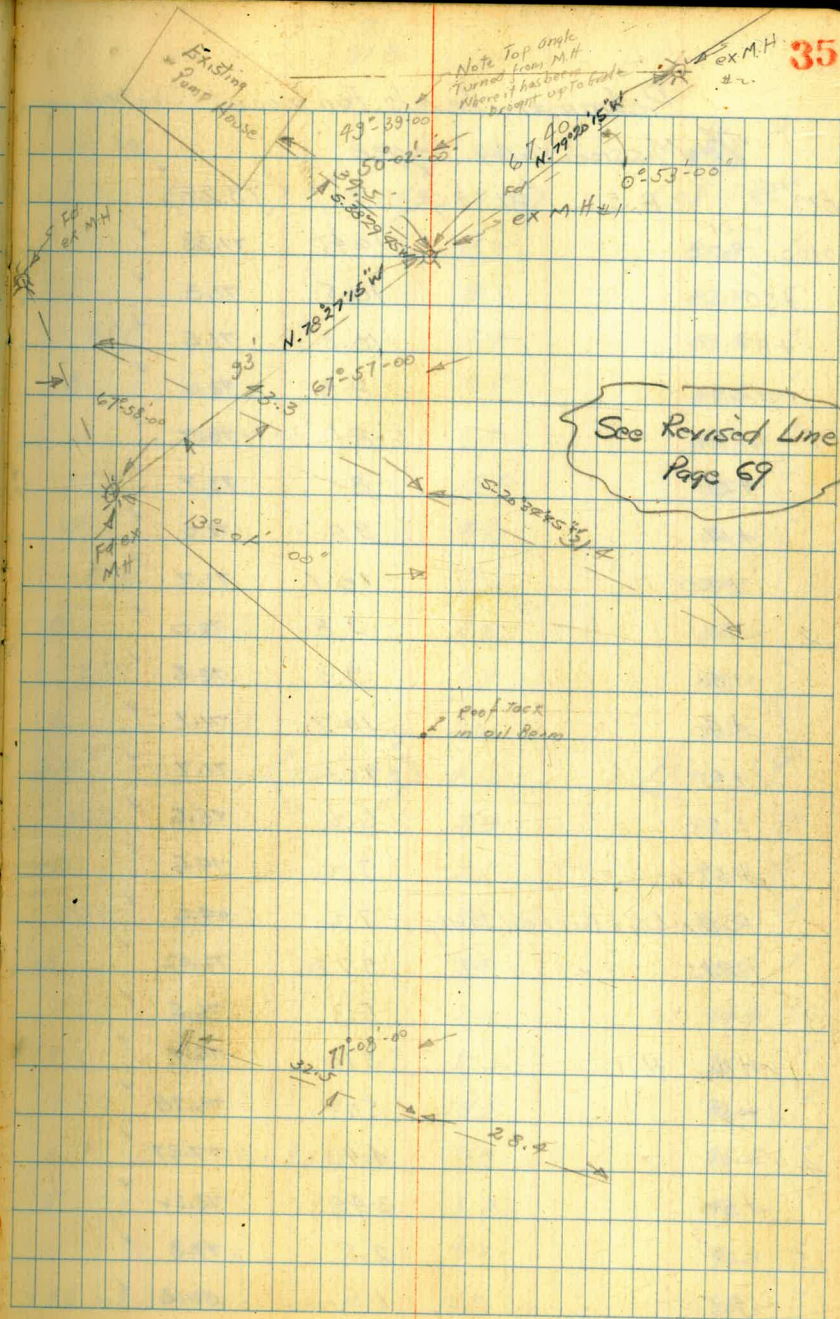 35
Existing
Pump House
Note Top angle
Turned from M.H
Where it has been
brought up To Grade
ex M.H
#2
49°-39'-00
50°-02'-00"
67.40
N. 79°20'15"W
0°-53'-00"
39.5
S. 38°29'45"W
Fd
ex M.H #1
Fd
ex M.H
N. 78°27'15"W
93'
43.3
67°-57'-00
67°-58'-00
See Revised Line
Page 69
S. 20°34'45"
21.4
Fd ex
M.H
13°-01'
00"
Roof Jack
in oil Berm
77°-08'-00
32.5
28.4